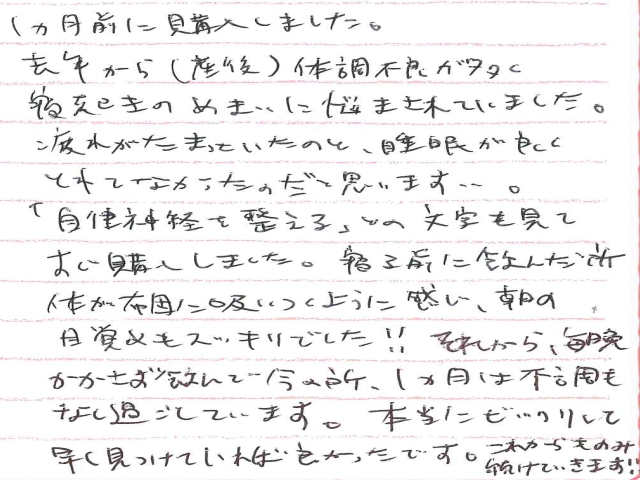 1ヵ月前に購入しました。
去年から(産後)体調不良が多く
寝起きのめまいに悩まされていました。
疲れがたまっていたのと、睡眠が良く
とれてなかったのだと思います…。
「自律神経を整える」との文字を見て
すぐ購入しました。寝る前に飲んだ所
体が布団に吸いつくように感じ、朝の
目覚めもスッキリでした!! それから、毎晩
かかさず飲んで今の所、1ヵ月は不調も
なく過ごしています。本当にビックリして
早く見つけていれば良かったです。これからものみ
続けていきます!!